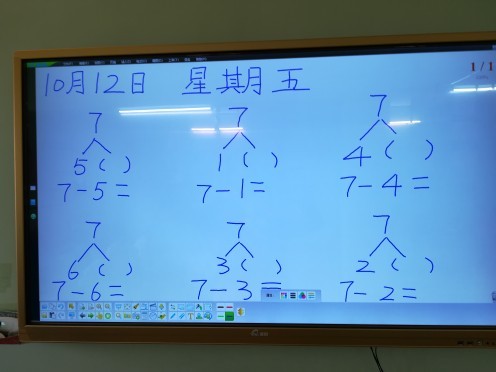 10月12日 星期五
1/1
7 7 7
5( ) 1( ) 4( )
7-5= 7-1= 7-4=
7 7 7
6( ) 3( ) 2( )
7-6= 7-3= 7-2=